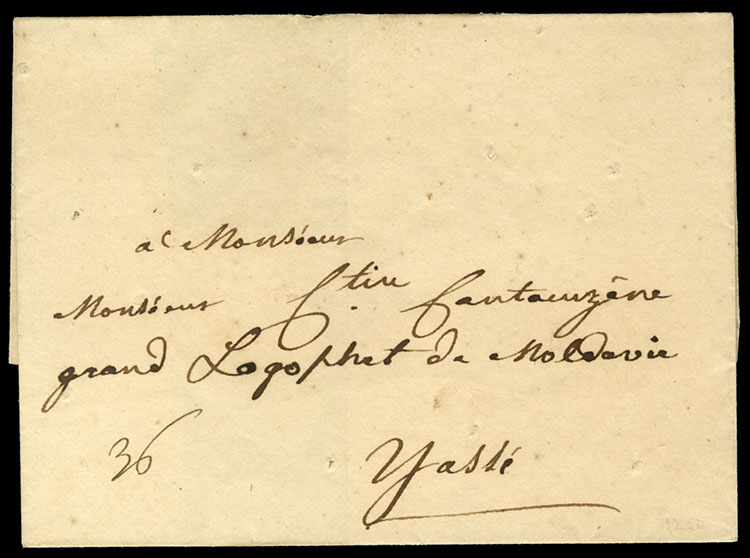 à Monsieur
Monsieur Ctin Cantacuzêne
grand Logophet de Moldavie
36
Yassé